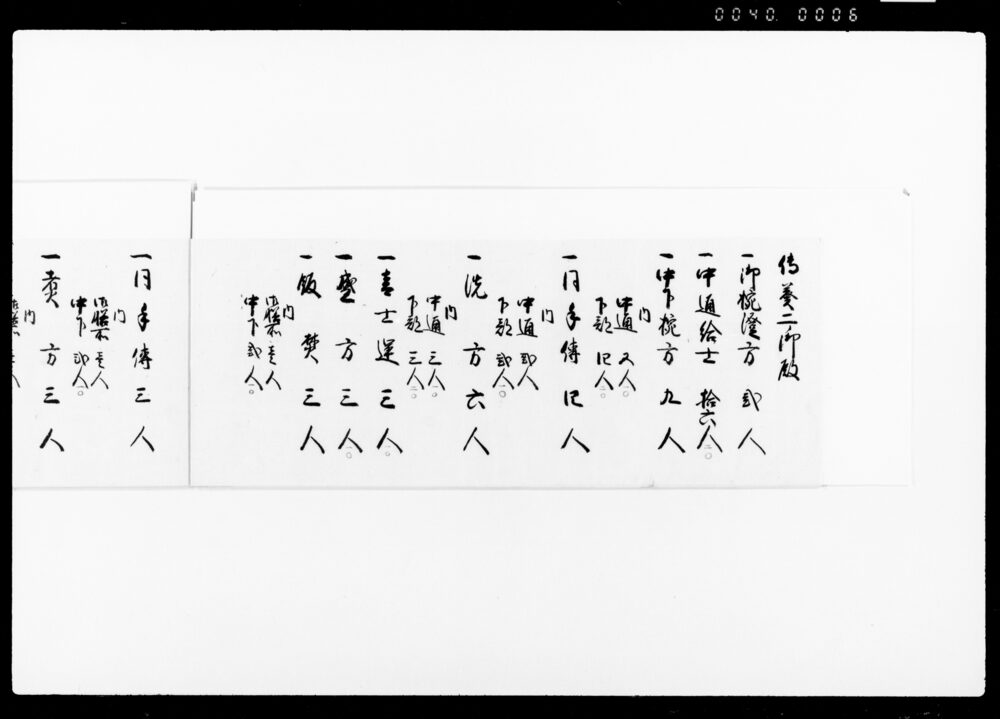 0040. 0006
二御殿
一御椀滝方 弐人
一中通給士 拾六人
一中下椀方 九人
内
中通 又人
下部 四人
一同手傳 四人
内
中通 弐人
下部 弐人
一洗方 六人
内
中通 三人
下部 三人
一士運 三人
一盛方 三人
一飯焚 三人
内
御膳所 壱人
中下 弐人
一同手傳 三人
内
御膳所 壱人
中下 弐人
一煮方 三人
内